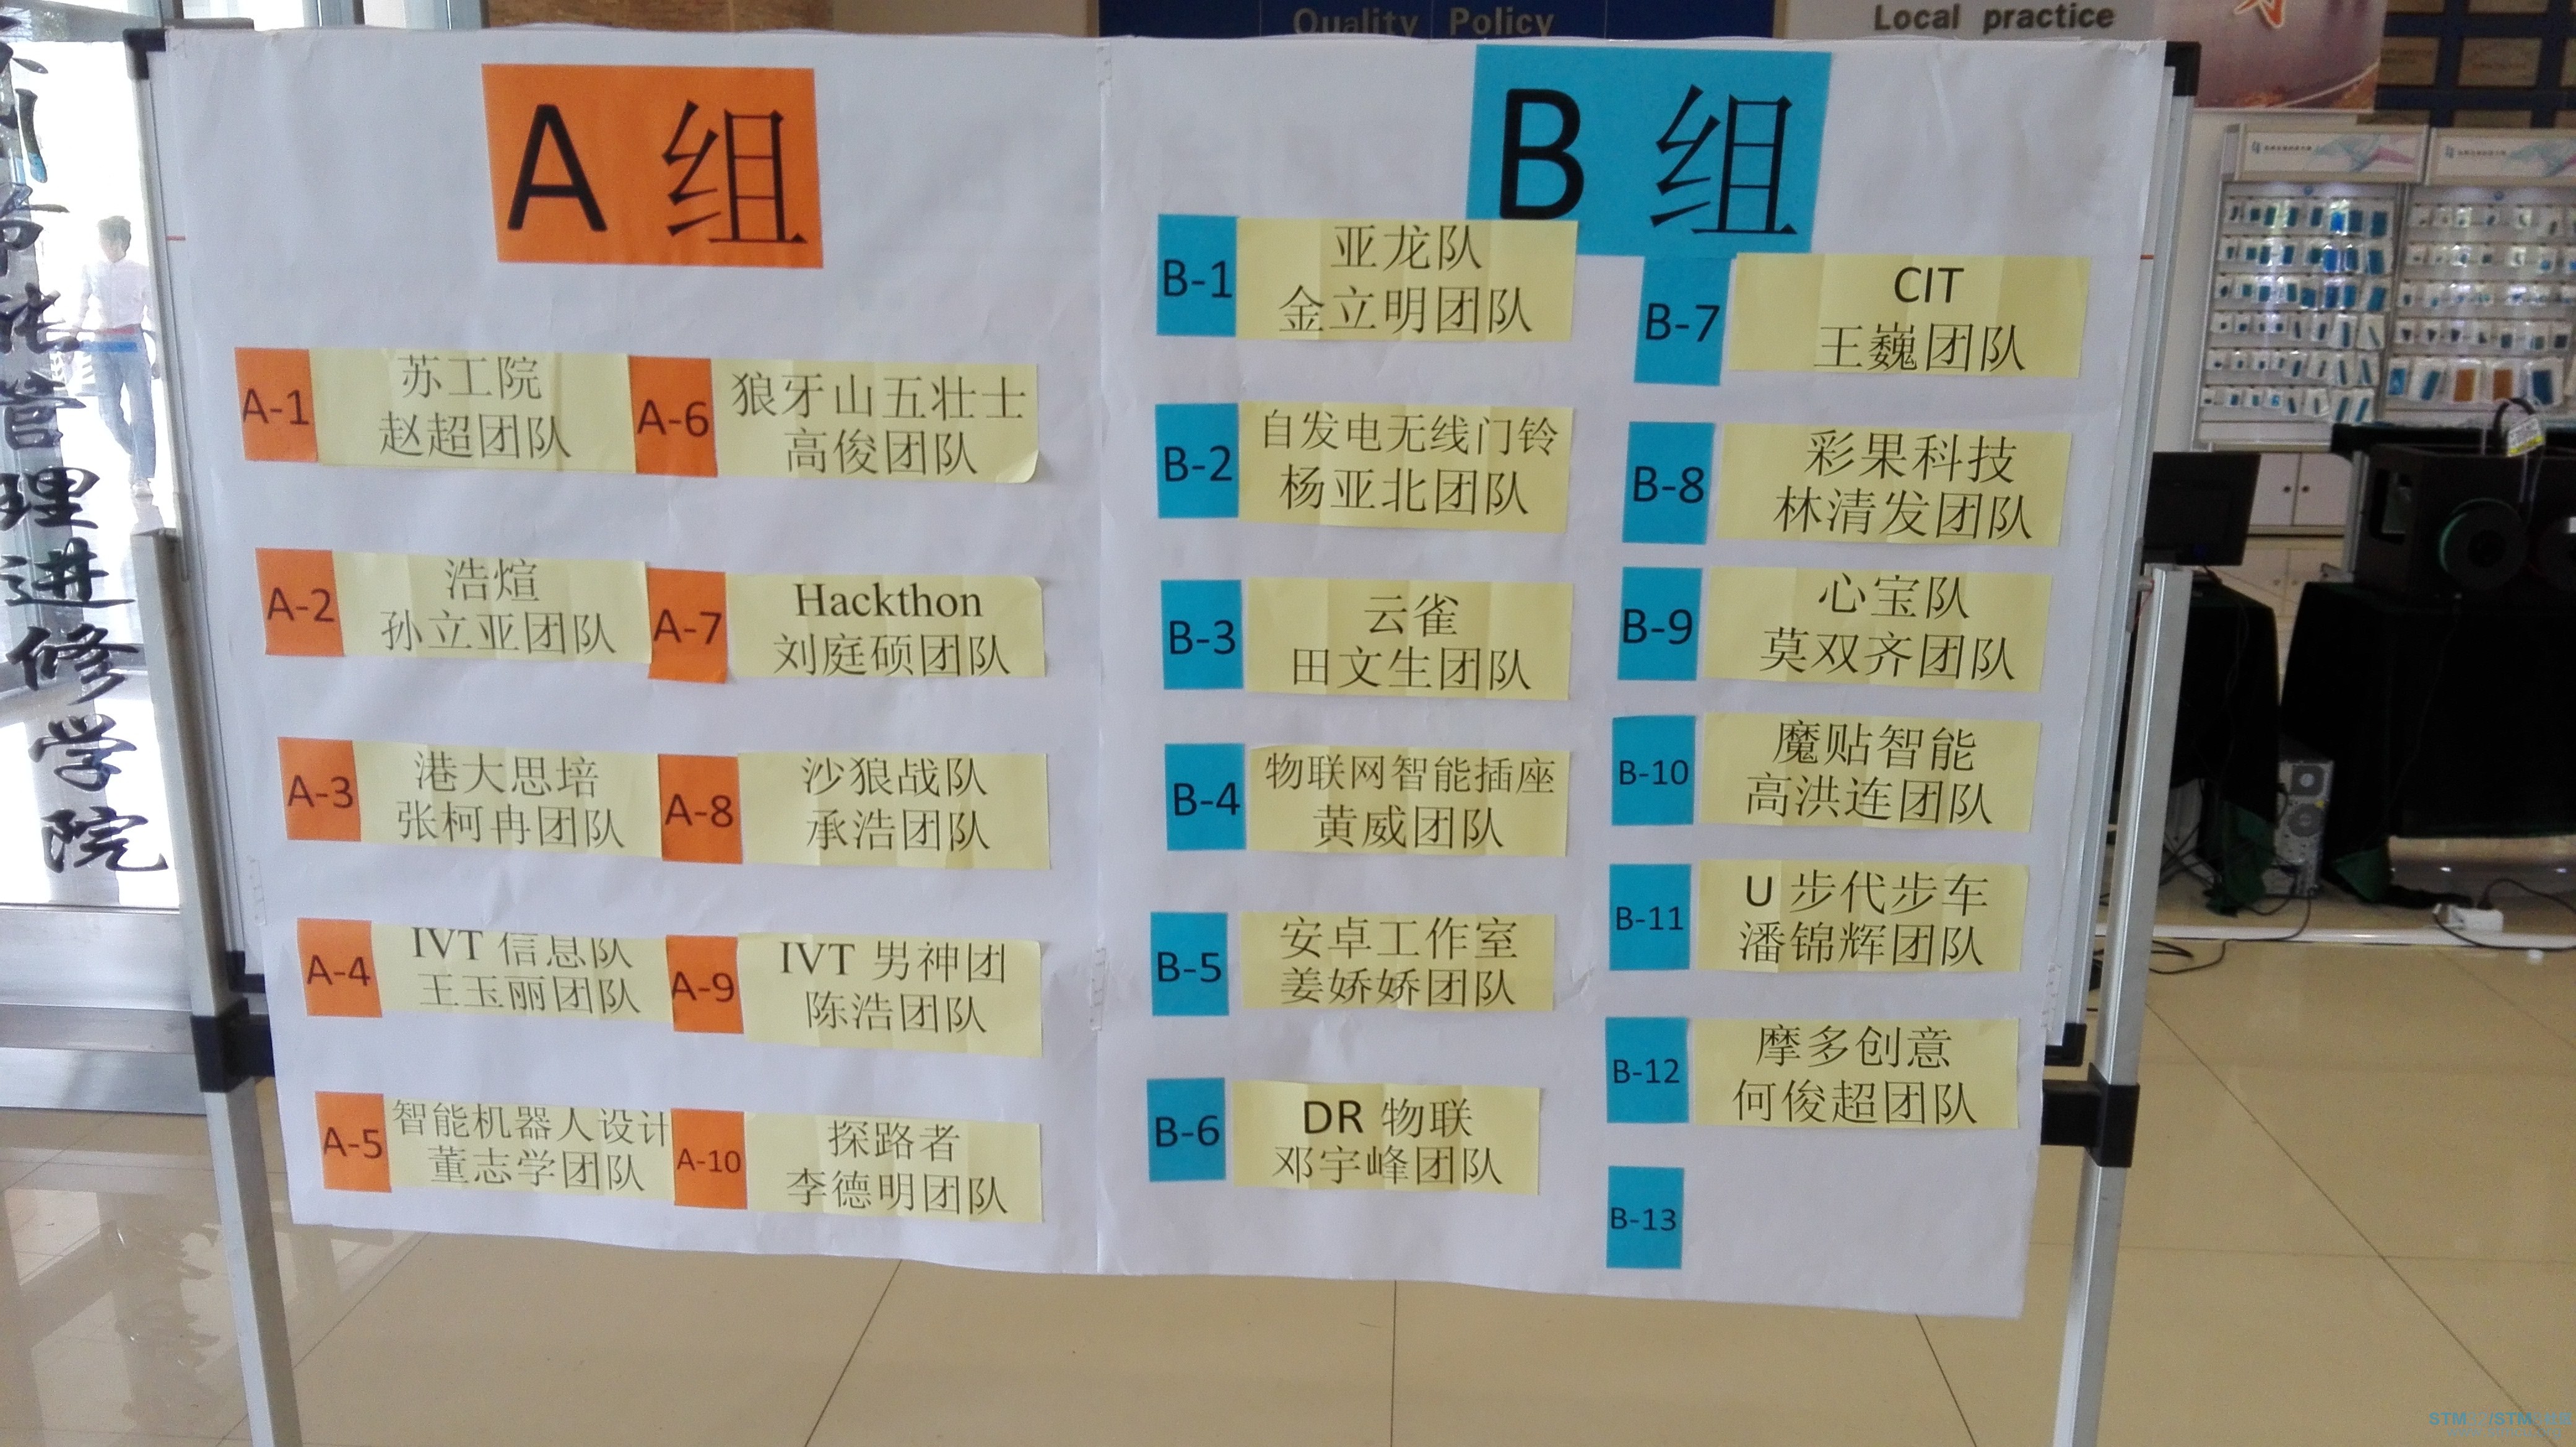 Quality Policy
Local practice
管理进修学院
A 组
A-1
苏工院
赵超团队
A-2
浩煊
孙立亚团队
A-3
港大思培
张柯冉团队
A-4
IVT 信息队
王玉丽团队
A-5
智能机器人设计
董志学团队
A-6
狼牙山五壮士
高俊团队
A-7
Hackthon
刘庭硕团队
A-8
沙狼战队
承浩团队
A-9
IVT 男神团
陈浩团队
A-10
探路者
李德明团队
B 组
B-1
亚龙队
金立明团队
B-2
自发电无线门铃
杨亚北团队
B-3
云雀
田文生团队
B-4
物联网智能插座
黄威团队
B-5
安卓工作室
姜娇娇团队
B-6
DR 物联
邓宇峰团队
B-7
CIT
王巍团队
B-8
彩果科技
林清发团队
B-9
心宝队
莫双齐团队
B-10
魔贴智能
高洪连团队
B-11
U 步代步车
潘锦辉团队
B-12
摩多创意
何俊超团队
B-13